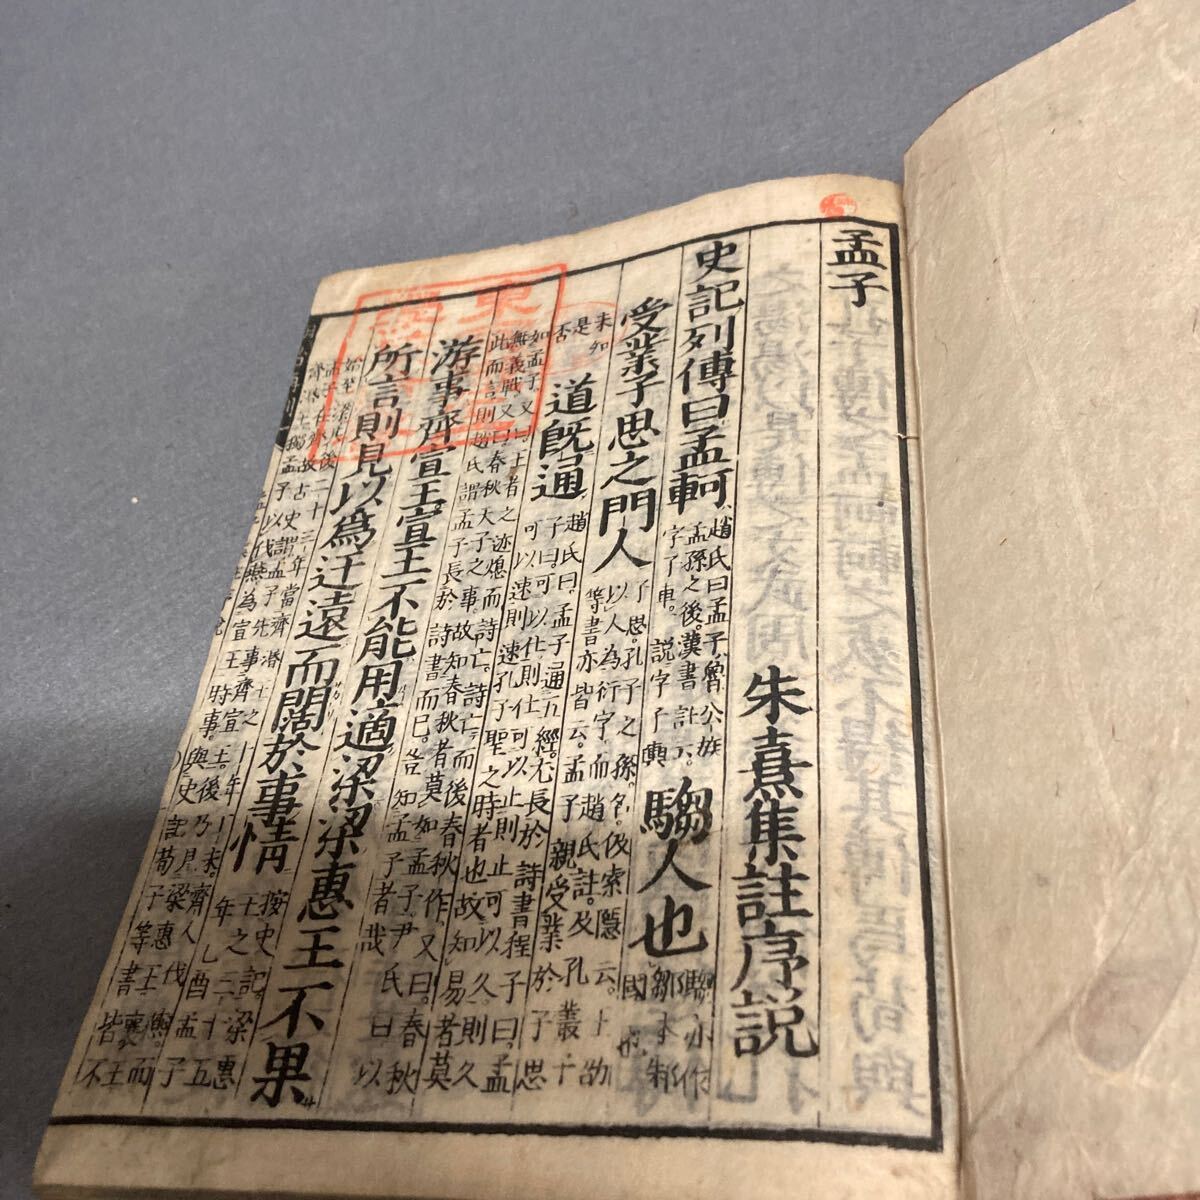 孟子
朱熹集註序説
史記列傳曰孟軻
趙氏曰孟子、魯公族
孟孫之後。漢書註云。
字子車。一説字子輿
騶人也
騶亦作
鄒本邾
國也
受業子思之門人
子思。孔子之孫。名伋索隱云。王劭
以人為衍字。而趙氏註。及孔叢子
等書亦皆云。孟子親受業於子思
未知
是否
道既通
趙氏曰。孟子通五經。尤長於詩書程子曰。孟
子曰。可以仕則仕可以止則止可以久。則久
可以速則速孔子聖之時者也故知易者莫
如孟子。又曰。王者之迹熄而詩亡。詩亡而後春秋作。又曰。春秋
無義戰又曰。春秋天子之事。故知春秋者莫如孟子。尹氏曰以
此而言則趙氏謂孟子長於詩書而已。豈知孟子者哉
游事齊宣王宣王不能用適梁梁惠王不果
所言則見以為迂遠而闊於事情
按史記。梁惠
王之三十五
年乙酉孟子
始至梁其後二十三年當齊湣王之十年丁未。齊人伐燕。而
孟子在齊故古史謂孟子先事齊宣王。後乃見梁惠王襄王
齊湣王獨孟子以伐燕為宣王時事。與史記荀子等書皆不